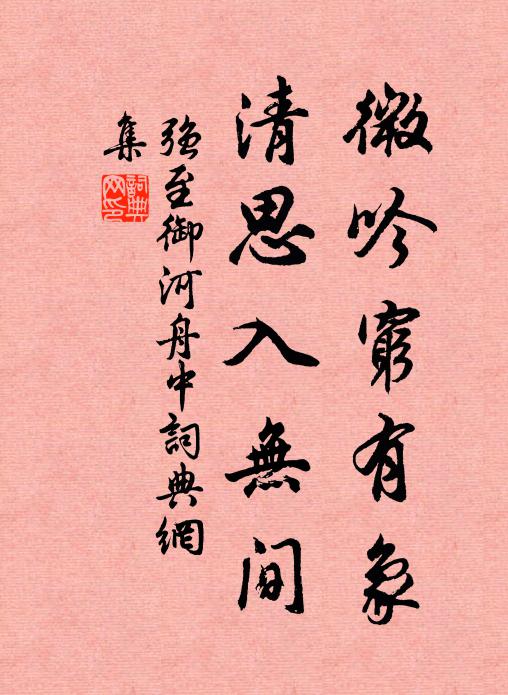 微吟窮有象
清思入無间
強至御河舟中詞典網
集
詞典
网印